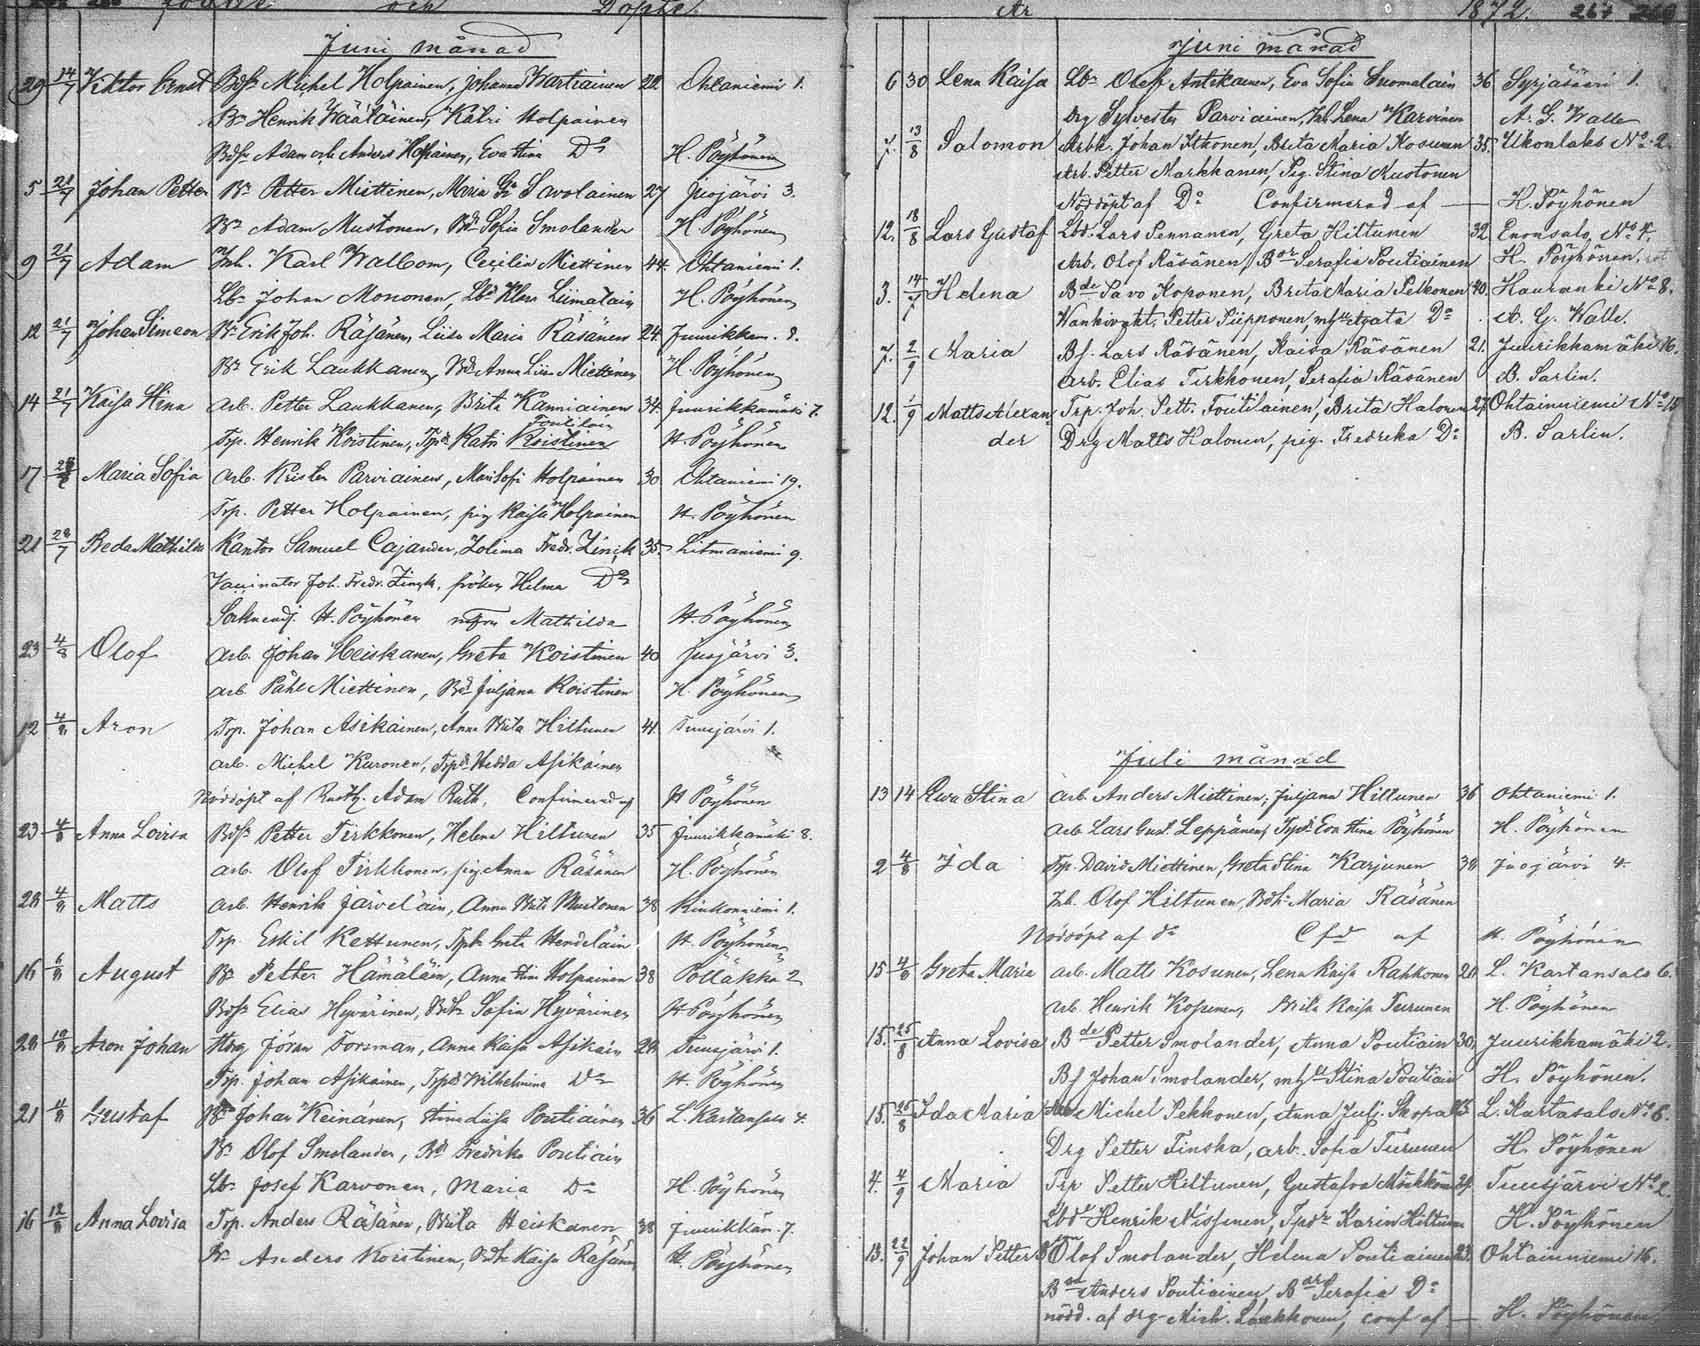 Födde och Döpte
Juni månad
29 14/7 Viktor Ernst Bdsn Michel Holpainen, Johanna Wartiainen 22 Ohtaniemi 1.
Bn Henrik Wäätäinen, Katri Holpainen
Bdsn Adam och Anders Holpainen, Eva Stina Do H. Pöyhönen
5 21/7 Johan Petter Bn Petter Miettinen, Maria Gr. Savolainen 27 Juojärvi 3.
Bn Adam Mustonen, Bdr Sofia Smolander H. Pöyhönen
9 21/7 Adam Inh. Karl Wallbom, Cecilia Miettinen 44. Ohtaniemi 1.
Lbn Johan Mononen, Lbd Klara Liimatain H. Pöyhönen
12 21/7 Johan Simeon Bn Erik Joh. Räsänen, Liisa Maria Räsänen 24. Juurikkam. 8.
Bn Erik Laukkanen, Bdr Anna Liisa Miettinen H. Pöyhönen
14 21/7 Kaisa Stina Arb. Petter Laukkanen, Brita Kanniainen 34. Juurikkamäki 7.
Trp. Henrik Koistinen, Trpd Katri Koistinen H. Pöyhönen
17 Maria Sofia Arb. Krister Parviainen, Mari Sofi Holpainen 30 Ohtaniemi 19.
Trp. Petter Holpainen, pig Kaisa Holpainen H. Pöyhönen
21 28/7 Beda Mathilda Kantor Samuel Cajander, Zelima Fredr. Zinck 35. Litmaniemi 9.
Vaccinator Joh. Fredr. Zinck, fröken Helma Do
H. Pöyhönen Mathilda H. Pöyhönen
23 4/8 Olof Arb. Johan Heiskanen, Greta Koistinen 40 Juojärvi 3.
Arb Påhl Miettinen, Bd Juljana Koistinen H. Pöyhönen
12 4/8 Aron Trp. Johan Asikainen, Anna Brita Hiltunen 41. Tuusjärvi 1.
Arb. Michel Kuronen, Trpd Hedda Asikainen
Nöddöpt af Adam Ruth, Confirmerad af H Pöyhönen
23 4/8 Anna Lovisa Bdsn Petter Tirkkonen, Helena Hiltunen 35 Juurikkamäki 8.
Arb. Olof Tirkkonen, pig. Anna Räsänen H. Pöyhönen
28 4/8 Matts Arb. Henrik Järveläin, Anna Brita Mustonen 38 Rinkonniemi 1.
Trp. Eskil Kettunen, Trph Greta Hendeläin H. Pöyhönen
16 6/8 August Bn Petter Hämäläin, Anna Stina Holpainen 38 Pölläkkä 2
Bdsn Elias Hyvärinen, Bdh Sofia Hyvärinen H Pöyhönen
28 10/8 Aron Johan Drg Jöran Forsman, Anna Kaisa Asikain 28 Tuusjärvi 1.
Trp. Johan Asikainen, Trpd Wilhelmina Do H. Pöyhönen
21 11/8 Gustaf Bn Johan Keinänen, Anna Liisa Poutiainen 36 L. Kartansalo 4.
Bn Olof Smolander, Bd Fredrika Poutiain
Lbn Josef Karvonen, Maria Do H. Pöyhönen
16 12/8 Anna Lovisa Trp. Anders Räsänen, Brita Heiskanen 38 Juurikkam. 7.
Bn Anders Koistinen, Bdh Kaisa Räsänen H. Pöyhönen
År 1872. 267
Juni månad
6 30 Lena Kaisa Lbn Olof Antikainen, Eva Sofia Suomalain 36 Syrjäsaari 1.
Drg Sylvester Parviainen, Inh. Lena Karvinen A. G. Walle
7. 13/8 Salomon Arbk. Johan Itkonen, Brita Maria Kosunen 35. Ukonlaks No. 2.
Arb. Petter Markkanen, Pig. Stina Kuotonen
Nöddöpt af Do Confirmerad af — H. Pöyhönen
12. 18/8 Lars Gustaf Lbd. Lars Pennanen, Greta Hiltunen 32. Enonsalo No 4.
Arb. Olof Räsänen, Bor Serafia Poutiainen H. Pöyhönen.
3. 14/7 Helena Bde Pavo Koponen, Brita Maria Pelkonen 40. Kauranki No 8.
Wankivakt. Petter Piipponen, Agata Do A. G. Walle.
7. 2/9 Maria Bf. Lars Räsänen, Kaisa Räsänen 21. Juurikkamäki 16.
Arb. Elias Tirkkonen, Serafia Räsänen B. Sarlin.
12. 1/9 Matts Alexan- Trp. Joh. Pett. Toutilainen, Brita Halonen 27. Ohtainniemi No 15
der Drg Matts Halonen, pig. Fredrika Do B. Sarlin.
Juli månad
13 14 Eva Stina Arb. Anders Miettinen, Juljana Hiltunen 36 Ohtaniemi 1.
Arb Lars Gust. Leppänen, Trpdr Eva Stina Pöyhönen H. Pöyhönen
2 4/8 Ida Trp. David Miettinen, Greta Stina Karjunen 38 Juojärvi 4.
Inh. Olof Hiltunen, Bdh. Maria Räsänen
Nöddöpt af do Cfd af H. Pöyhönen
15 4/8 Greta Maria Arb. Matts Kosunen, Lena Kaisa Rahkonen 28 L. Kartansalo 6.
Arb. Henrik Kosunen, Brita Kaisa Turunen H. Pöyhönen
15. 25/8 Anna Lovisa Bde Petter Smolander, Anna Poutiain 30. Juurikkamäki 2.
Bf Johan Smolander, Stina Poutiain H. Pöyhönen.
15. 25/8 Ida Maria Michel Pekkonen, Anna Julj. Skopa L. Kartasalo No 6.
Drg Petter Finska, arb. Sofia Turunen H. Pöyhönen
4. 4/9 Maria Trp Petter Hiltunen, Gustafva Miikkönen 29. Tuusjärvi No 2.
Lbdr Henrik Nissinen, Tpdr Karin Hiltunen H. Pöyhönen
13. 22/9 Johan Petter Bd Olof Smolander, Helena Poutiainen 23. Ohtainniemi 16.
Bad Anders Poutiainen, Bar Serafia Do
nödd. af drg Mich. Laukkonen, conf af — H. Pöyhönen.